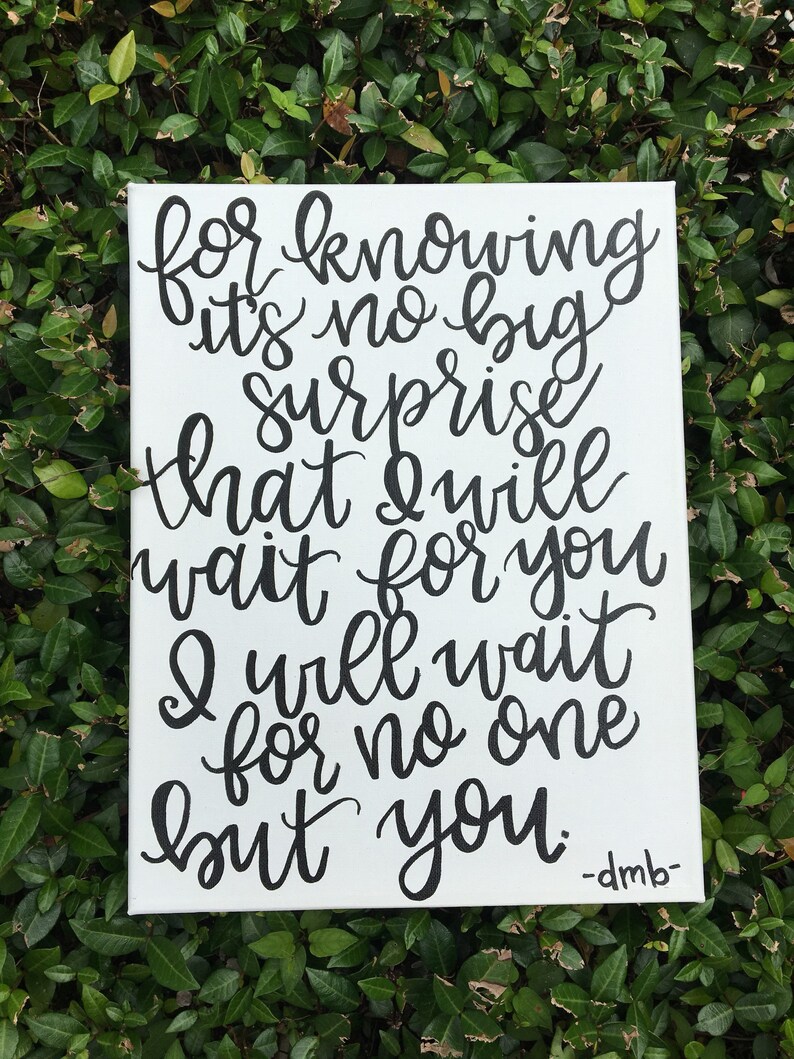 for knowing
it's no big
surprise
that I will
wait for you
I will wait
for no one
but you.
-dmb-